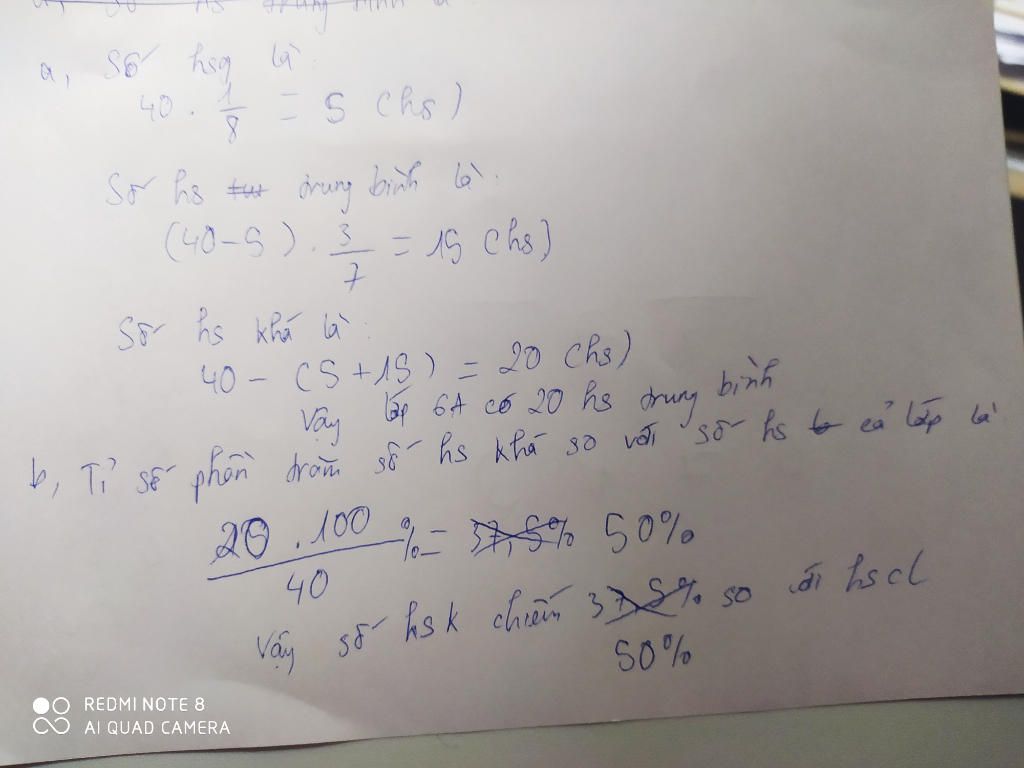 a, Số hsg là:
40 . 1/8 = 5 (hs)
Số hs trung bình là:
(40-5) . 3/7 = 15 (hs)
Số hs khá là:
40 - (5+15) = 20 (hs)
Vậy lớp 6A có 20 hs trung bình
b, Tỉ số phần trăm số hs khá so với số hs cả lớp là
20 . 100 / 40 % = 37,5% 50%
Vậy số hsk chiếm 37,5% so với hscl
50%
REDMI NOTE 8
AI QUAD CAMERA